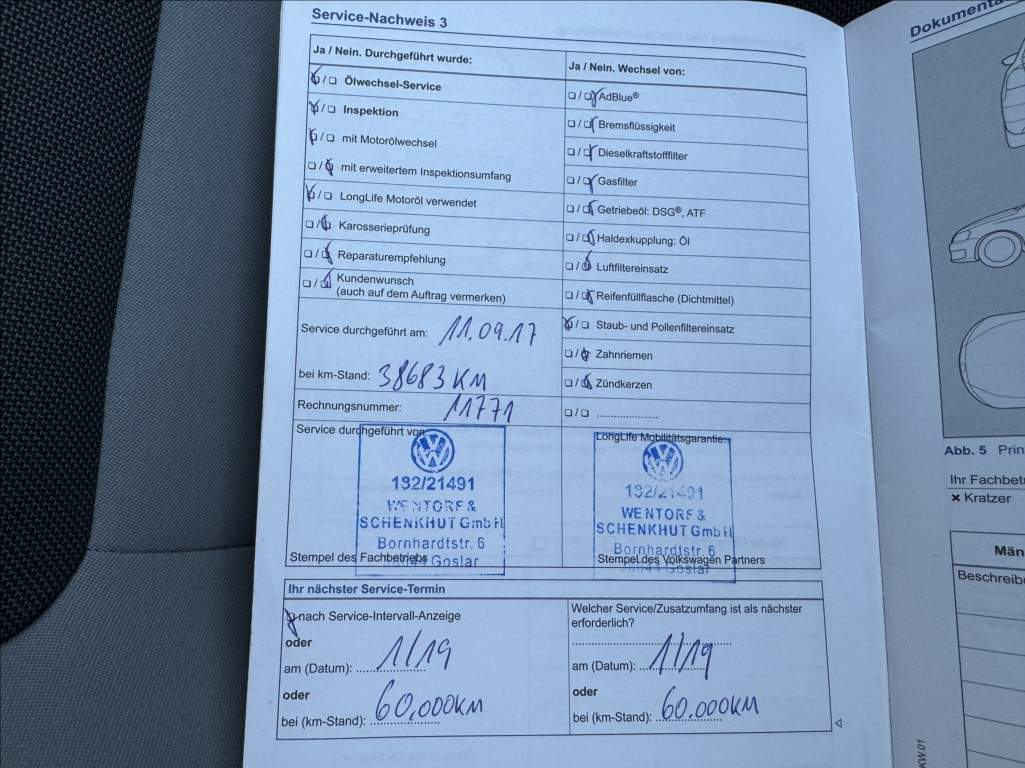 Service-Nachweis 3
Ja / Nein. Durchgeführt wurde:
☒/☐ Ölwechsel-Service
☒/☐ Inspektion
☒/☐ mit Motorölwechsel
☐/☒ mit erweitertem Inspektionsumfang
☒/☐ LongLife Motoröl verwendet
☐/☒ Karosserieprüfung
☐/☒ Reparaturempfehlung
☐/☒ Kundenwunsch
(auch auf dem Auftrag vermerken)
Service durchgeführt am: 11.09.17
bei km-Stand: 38683 KM
Rechnungsnummer: 11771
Service durchgeführt von:
VW
132/21491
WENTORF &
SCHENKHUT GmbH
Bornhardtstr. 6
38644 Goslar
Stempel des Fachbetriebs
Ja / Nein. Wechsel von:
☐/☒ AdBlue®
☐/☒ Bremsflüssigkeit
☐/☒ Dieselkraftstofffilter
☐/☒ Gasfilter
☐/☒ Getriebeöl: DSG®, ATF
☐/☒ Haldexkupplung: Öl
☐/☒ Luftfiltereinsatz
☐/☒ Reifenfüllflasche (Dichtmittel)
☒/☐ Staub- und Pollenfiltereinsatz
☐/☒ Zahnriemen
☐/☒ Zündkerzen
☐/☐ ....................
LongLife Mobilitätsgarantie:
VW
132/21491
WENTORF &
SCHENKHUT GmbH
Bornhardtstr. 6
38644 Goslar
Stempel des Volkswagen Partners
Ihr nächster Service-Termin
☒ nach Service-Intervall-Anzeige
oder
am (Datum): 1/19
oder
bei (km-Stand): 60.000KM
Welcher Service/Zusatzumfang ist als nächster
erforderlich?
am (Datum): 1/19
oder
bei (km-Stand): 60.000KM
Dokumenta
Abb. 5 Prin
Ihr Fachbetr
× Kratzer
Män
Beschreibe
KW.01